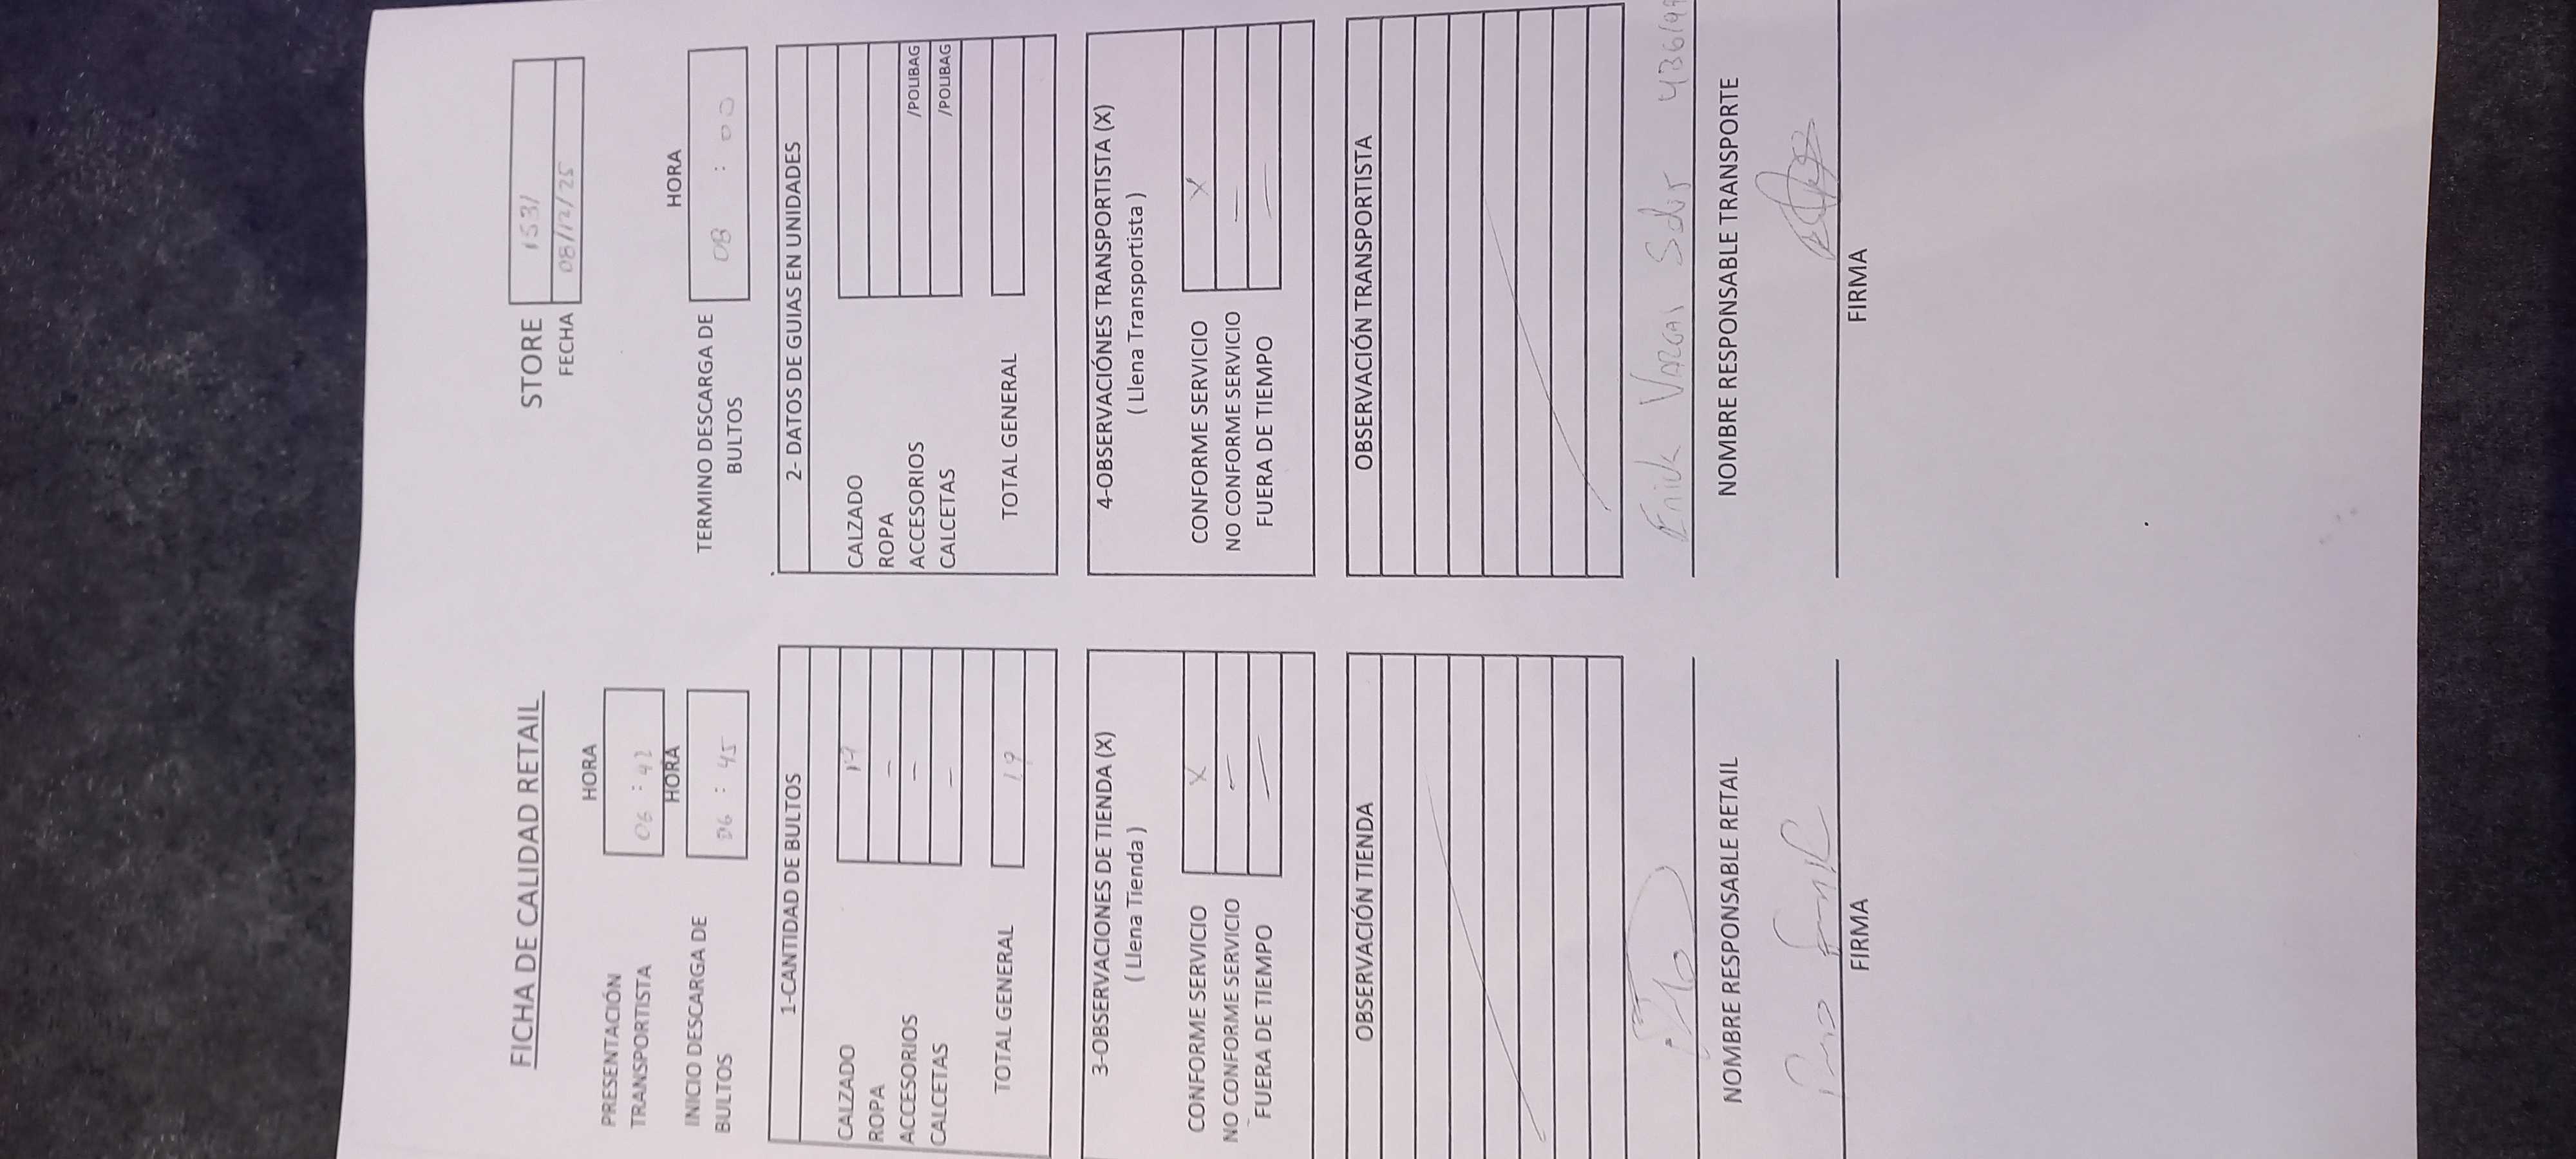 FICHA DE CALIDAD RETAIL
STORE 1531
FECHA 08/12/25
HORA
PRESENTACIÓN TRANSPORTISTA 06 : 42
HORA
INICIO DESCARGA DE BULTOS 06 : 45
HORA
TERMINO DESCARGA DE BULTOS 08 : 00
1-CANTIDAD DE BULTOS
CALZADO 19
ROPA –
ACCESORIOS –
CALCETAS –
TOTAL GENERAL 19
2- DATOS DE GUIAS EN UNIDADES
CALZADO
ROPA
ACCESORIOS /POLIBAG
CALCETAS /POLIBAG
TOTAL GENERAL
3-OBSERVACIONES DE TIENDA (X)
( Llena Tienda )
CONFORME SERVICIO X
NO CONFORME SERVICIO –
FUERA DE TIEMPO –
4-OBSERVACIÓNES TRANSPORTISTA (X)
( Llena Transportista )
CONFORME SERVICIO X
NO CONFORME SERVICIO –
FUERA DE TIEMPO –
OBSERVACIÓN TIENDA
OBSERVACIÓN TRANSPORTISTA
NOMBRE RESPONSABLE RETAIL
FIRMA
Erick Vargas
NOMBRE RESPONSABLE TRANSPORTE
FIRMA